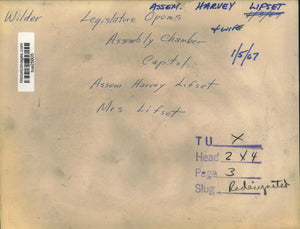 ASSEM. HARVEY LIFSET
+ WIFE
Wilder Legislature Opens 1/5/67
Assembly Chamber
Capitol
Assem Harvey Lifset
Mrs Lifset
TU X
Head 2 X 4
Page 3
Slug